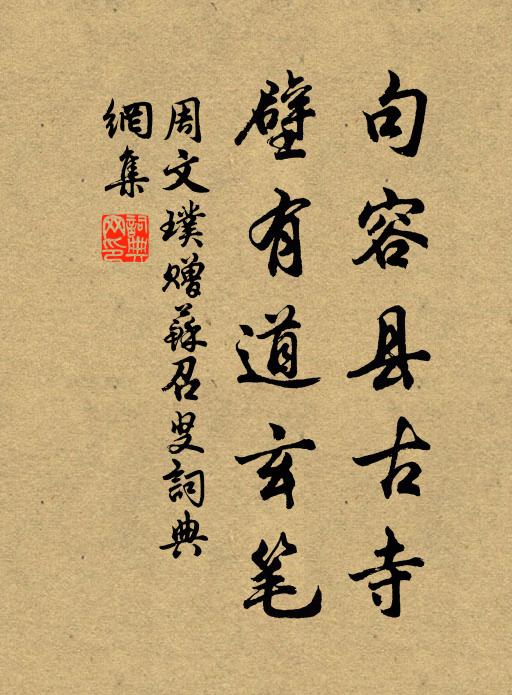 句容县古寺
壁有道玄笔
周文璞赠蘇召叟詞典
網集
詞典網印